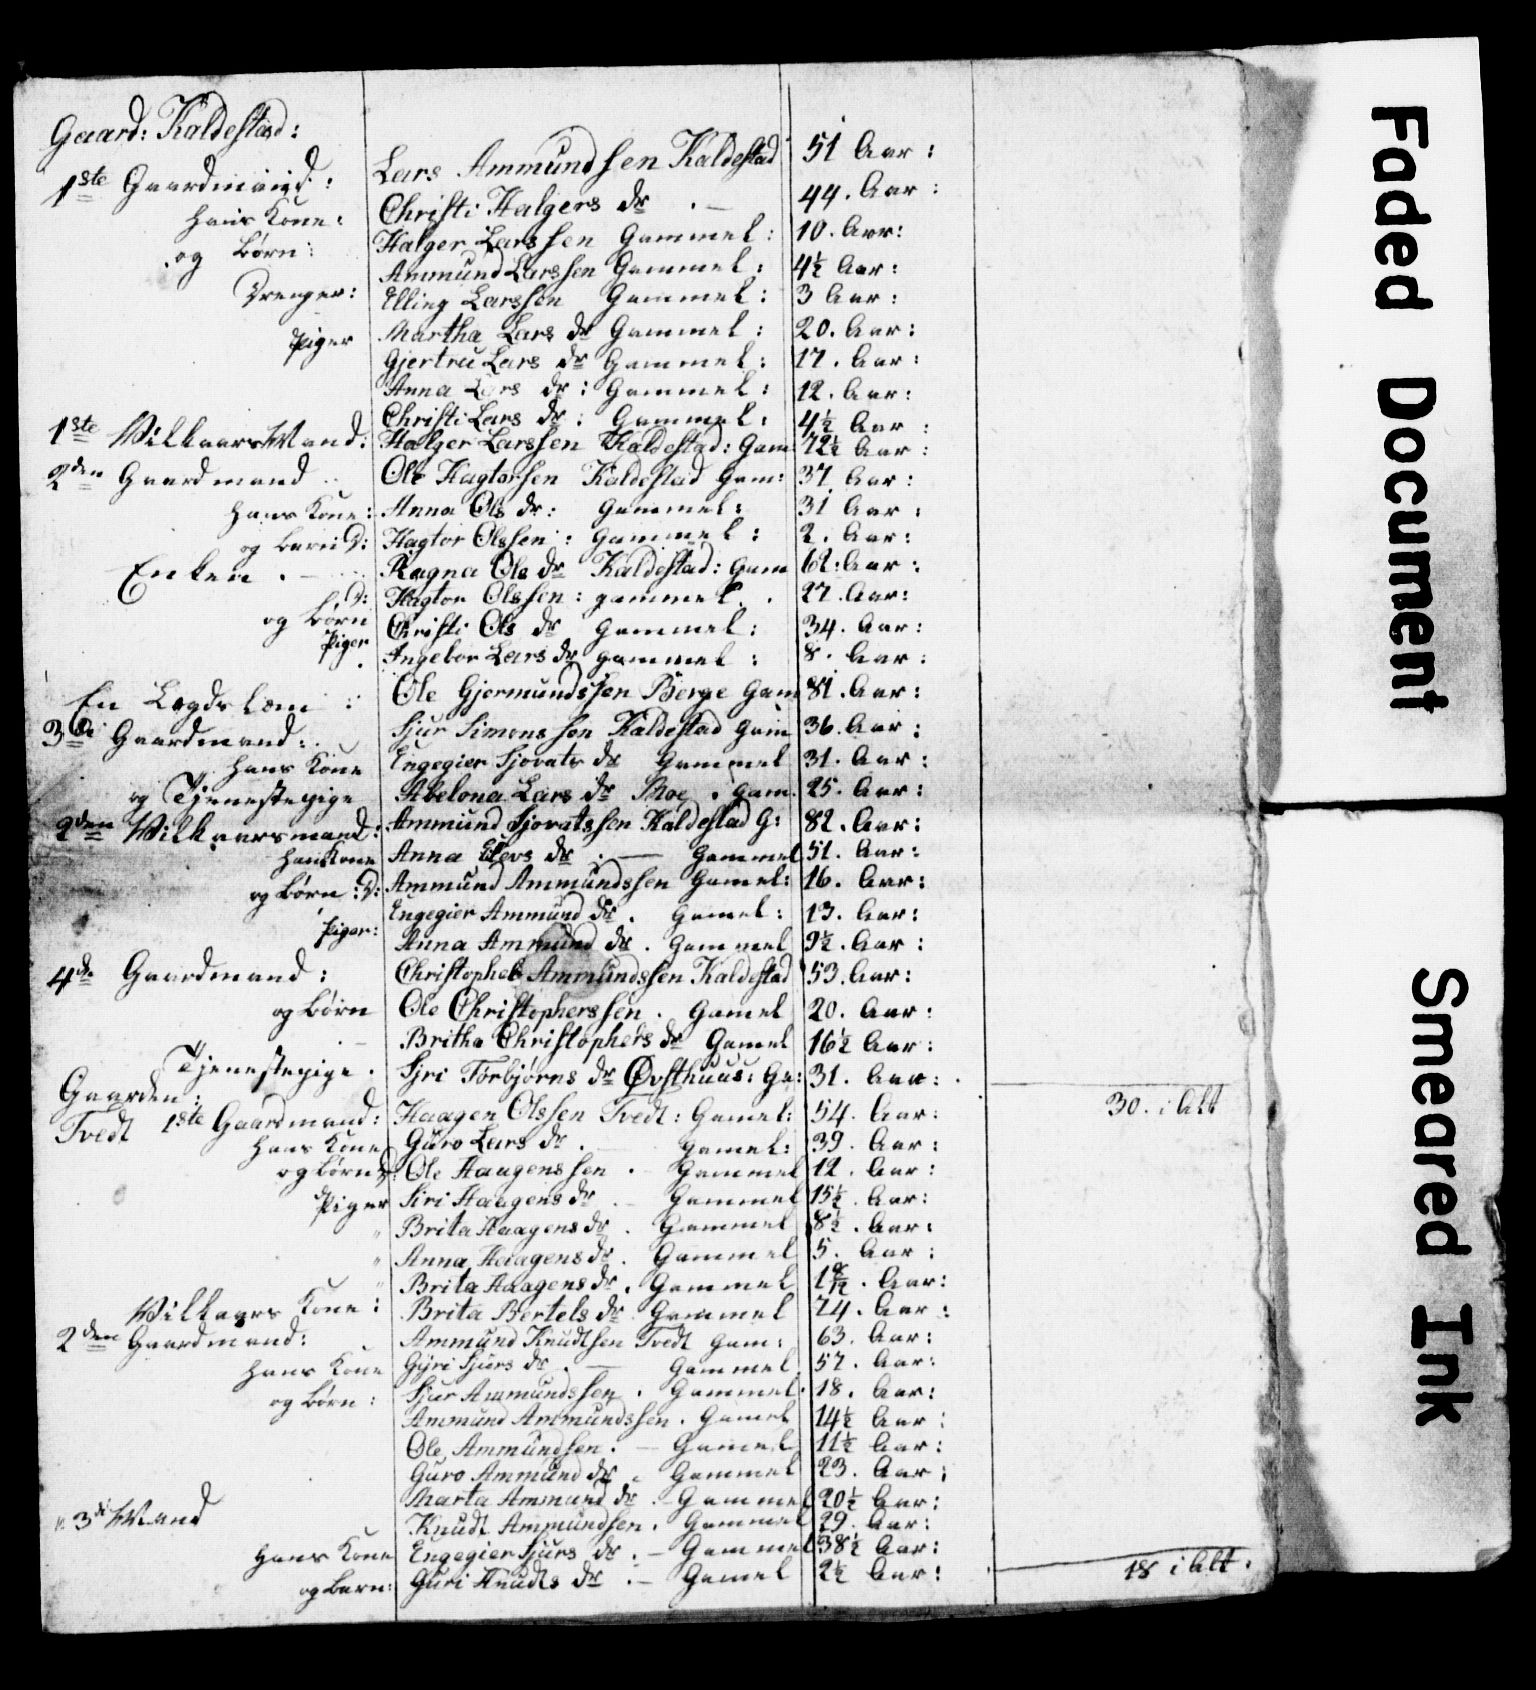 Gaard: Kaldestad:
1ste Gaardmand: Lars Ammundssen Kaldestad 51 Aar:
hans Kone: Christi Halgers dr . — 44. Aar:
og Børn: Halger Larssen Gammel: 10. Aar:
Ammund Larssen Gammel: 4½ Aar:
Drenger: Elling Larssen Gammel: 3 Aar:
Piger Martha Lars dr Gammel: 20. Aar:
Gjertru Lars dr Gammel: 17. Aar:
Anna Lars dr: Gammel: 12. Aar:
Christi Lars dr: Gammel: 4½ Aar:
1ste Vilkaars Mand: Halger Larssen Kaldestad: Gam 72½ Aar:
2den Gaardmand Ole Hagtorsen Kaldestad Gam: 37 Aar:
hans Kone: Anna Ols dr: Gammel: 31 Aar:
og barn D: Hagtor Olssen: Gammel: 2. Aar:
Enken . — Ragna Ole dr Kaldestad: Gam 62: Aar:
D: Hagtor Olssen: gammel. . 27. Aar:
og Børn Piger Christi Ols dr Gammel: 34. Aar:
Ingebor Lars dr gammel: 8. Aar:
En Legdslem : Ole Gjermundssen Berge Gam 81. Aar:
3die Gaardmand: Sjur Simonssen Kaldestad Gam 36. Aar:
hans Kone Engegier Sjovats dr Gammel 31. Aar:
og Tjenestepige Abelona Lars dr Moe . Gam. 25. Aar:
2den Vilkaarsmand: Ammund Sjovatssen Kaldestad G: 82. Aar:
hans Kone Anna Elevs dr . — Gammel 51. Aar:
og Børn: D: Ammund Ammundssen Gamel: 16. Aar:
Piger: Engegier Ammund dr. Gamel: 13. Aar:
Anna Ammund dr. Gammel 9½. Aar:
4de Gaardmand: Christopher Ammundssen Kaldestad 53. Aar:
og Børn Ole Christopherssen. Gamel 20. Aar:
Britha Christophers dr Gamel 16½ Aar:
Tjenestepige. Sjri Torbjørns dr Øvsthuus: Ga: 31. Aar:
30. i Alt
Gaarden:
Tvedt 1ste Gaardmand: Haagen Olssen Tvedt: Gamel: 54. Aar:
hans Kone Guro Lars dr . gamel: 39. Aar:
og Børn D: Ole Haagenssen . Gammel 12. Aar:
Piger Siri Haagens dr . Gammel 15½. Aar:
" Brita Haagens dr. Gammel 8½. Aar:
" Anna Haagens dr. Gammel 5. Aar:
" Brita Haagens dr. Gammel Aar:
Vilkaars Kone: Brita Bertels dr. Gammel 74. Aar:
2den Gaardmand: Ammund Knudtsen Tvedt Gam: 63. Aar:
hans Kone Gyri Sjurs dr . — Gammel 57. Aar:
og Børn: Sjur Ammundssen. Gammel. 18. Aar:
Ammund Ammundssen. Gamel 14½ Aar:
Ole Ammundsen. — Gamel 11½ Aar:
Guro Ammund dr . Gammel 23. Aar:
Marta Ammund dr . Gammel 20½ Aar:
3di Mand Knudt Ammundsen. Gammel 29. Aar:
hans Kone Engegier Sjurs dr . — Gammel 38½ Aar:
og barn: Guri Knudts dr . — Gamel 2½ Aar:
18 i Alt:
Faded Document
Smeared Ink